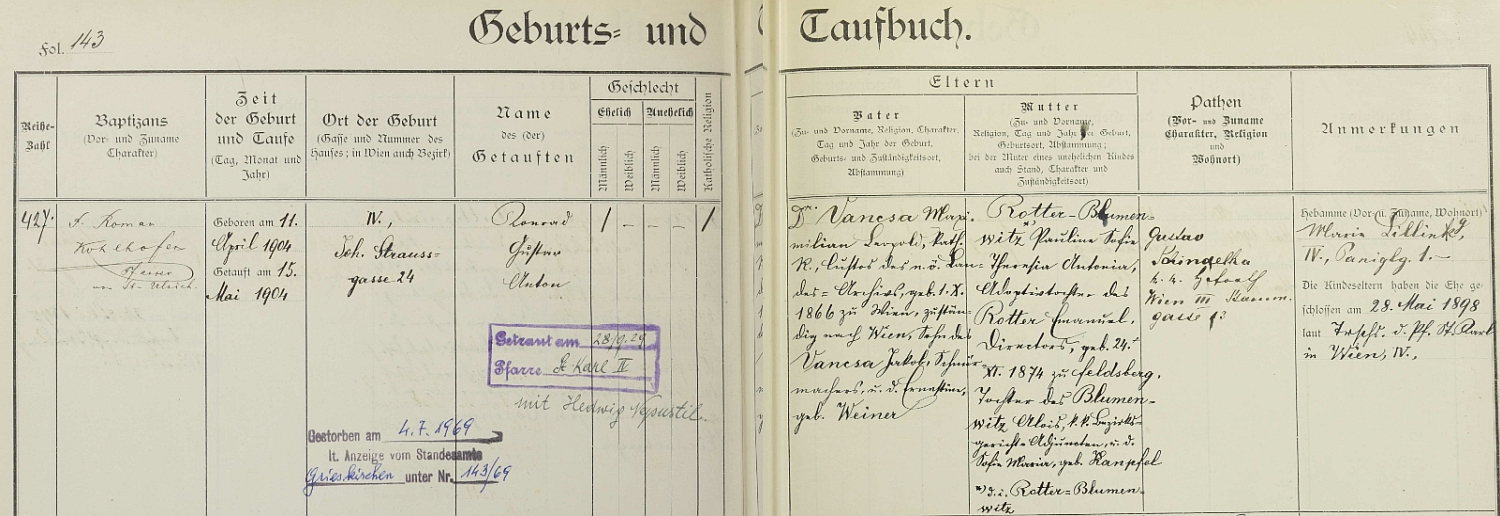 Fol. 143
Geburts= und Taufbuch.
Reihe-
Zahl
Baptizans
(Vor- und Zuname
Charakter)
Zeit
der Geburt
und Taufe
(Tag, Monat und
Jahr)
Ort der Geburt
(Gasse und Nummer des
Hauses; in Wien auch Bezirk)
Name
des (der)
Getauften
Geschlecht
Ehelich
Unehelich
Männlich
Weiblich
Männlich
Weiblich
Katholische Religion
Eltern
Vater
(Zu- und Vorname, Religion, Charakter,
Tag und Jahr der Geburt,
Geburts- und Zuständigkeitsort,
Abstammung)
Mutter
(Zu- und Vorname,
Religion, Tag und Jahr der Geburt,
Geburtsort, Abstammung;
bei der Muter eines unehelichen Kindes
auch Stand, Charakter und
Zuständigkeitsort)
Pathen
(Vor- und Zuname
Charakter, Religion
und
Wohnort)
Anmerkungen
427.
Roman
Kohlhofer
Pfarrer
von St. Ulrich.
Geboren am 11.
April 1904
Getauft am 15.
Mai 1904
IV.,
Joh. Strauss=
gasse 24
Konrad
Gustav
Anton
/ – – – /
Getraut am 28/9.29
Pfarre St Karl IV
mit Hedwig
Gestorben am 4.7.1969
lt. Anzeige vom Standesamte
Grieskirchen unter Nr. 143/69
Dr. Vancsa Maxi-
milian Leopold, kath.
R., Custos des n.ö. Lan-
des=Archivs, geb. 1.X.
1866 zu Wien, zustän-
dig nach Wien, Sohn des
Vancsa Jakob, Schnür-
machers, u. d. Ernestine,
geb. Weiner
Rotter=Blumen=
witz *) Pauline Sofie
Theresia Antonia,
Adoptivtochter des
Rotter Emanuel,
Directors, geb. 24.
XI. 1874 zu Feldsberg,
Tochter des Blumen=
witz Alois, k.k. Bezirks-
gerichts-Adjuncten, u. d.
Sofie Maria, geb.
*) d.i. Rotter=Blumen-
witz
Gustav
k. k. Hofrath
Wien III
gasse
Hebamme (Vor- u. Zuname, Wohnort)
Marie
IV., Paniglg. 1.–
Die Kindeseltern haben die Ehe ge-
schlossen am 28. Mai 1898
laut Trschs. d. Pf. St. Karl
in Wien, IV.,